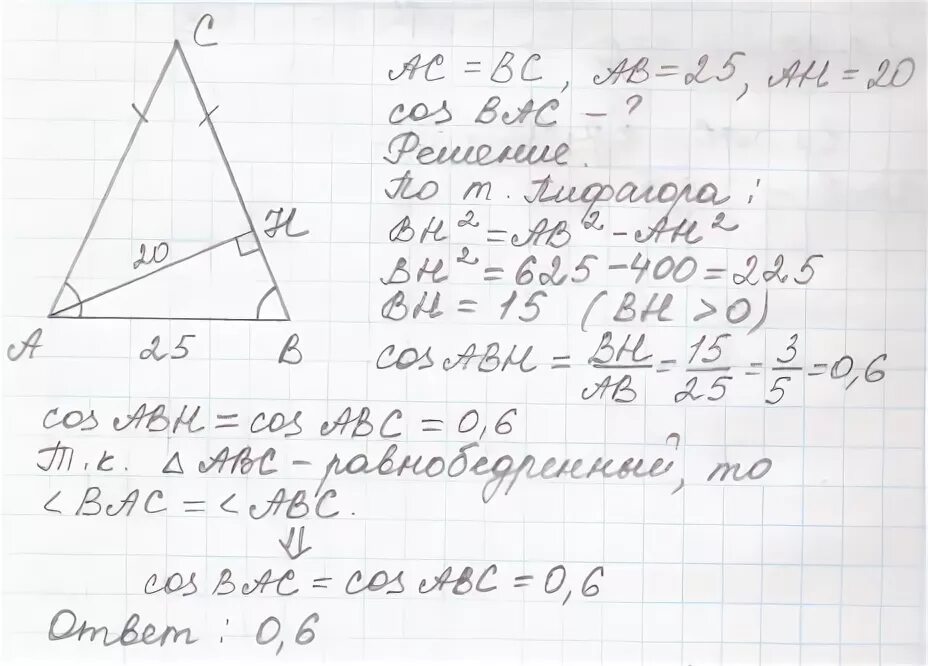 C
AC = BC, AB = 25, AH = 20
cos BAC – ?
Решение.
По т. Пифагора:
H
BH² = AB² – AH²
20
BH² = 625 – 400 = 225
BH = 15 (BH > 0)
A 25 B
cos ABH = BH/AB = 15/25 = 3/5 = 0,6
cos ABH = cos ABC = 0,6
Т.к. △ ABC – равнобедренный, то
∠BAC = ∠ABC.
⇓
cos BAC = cos ABC = 0,6
Ответ: 0,6